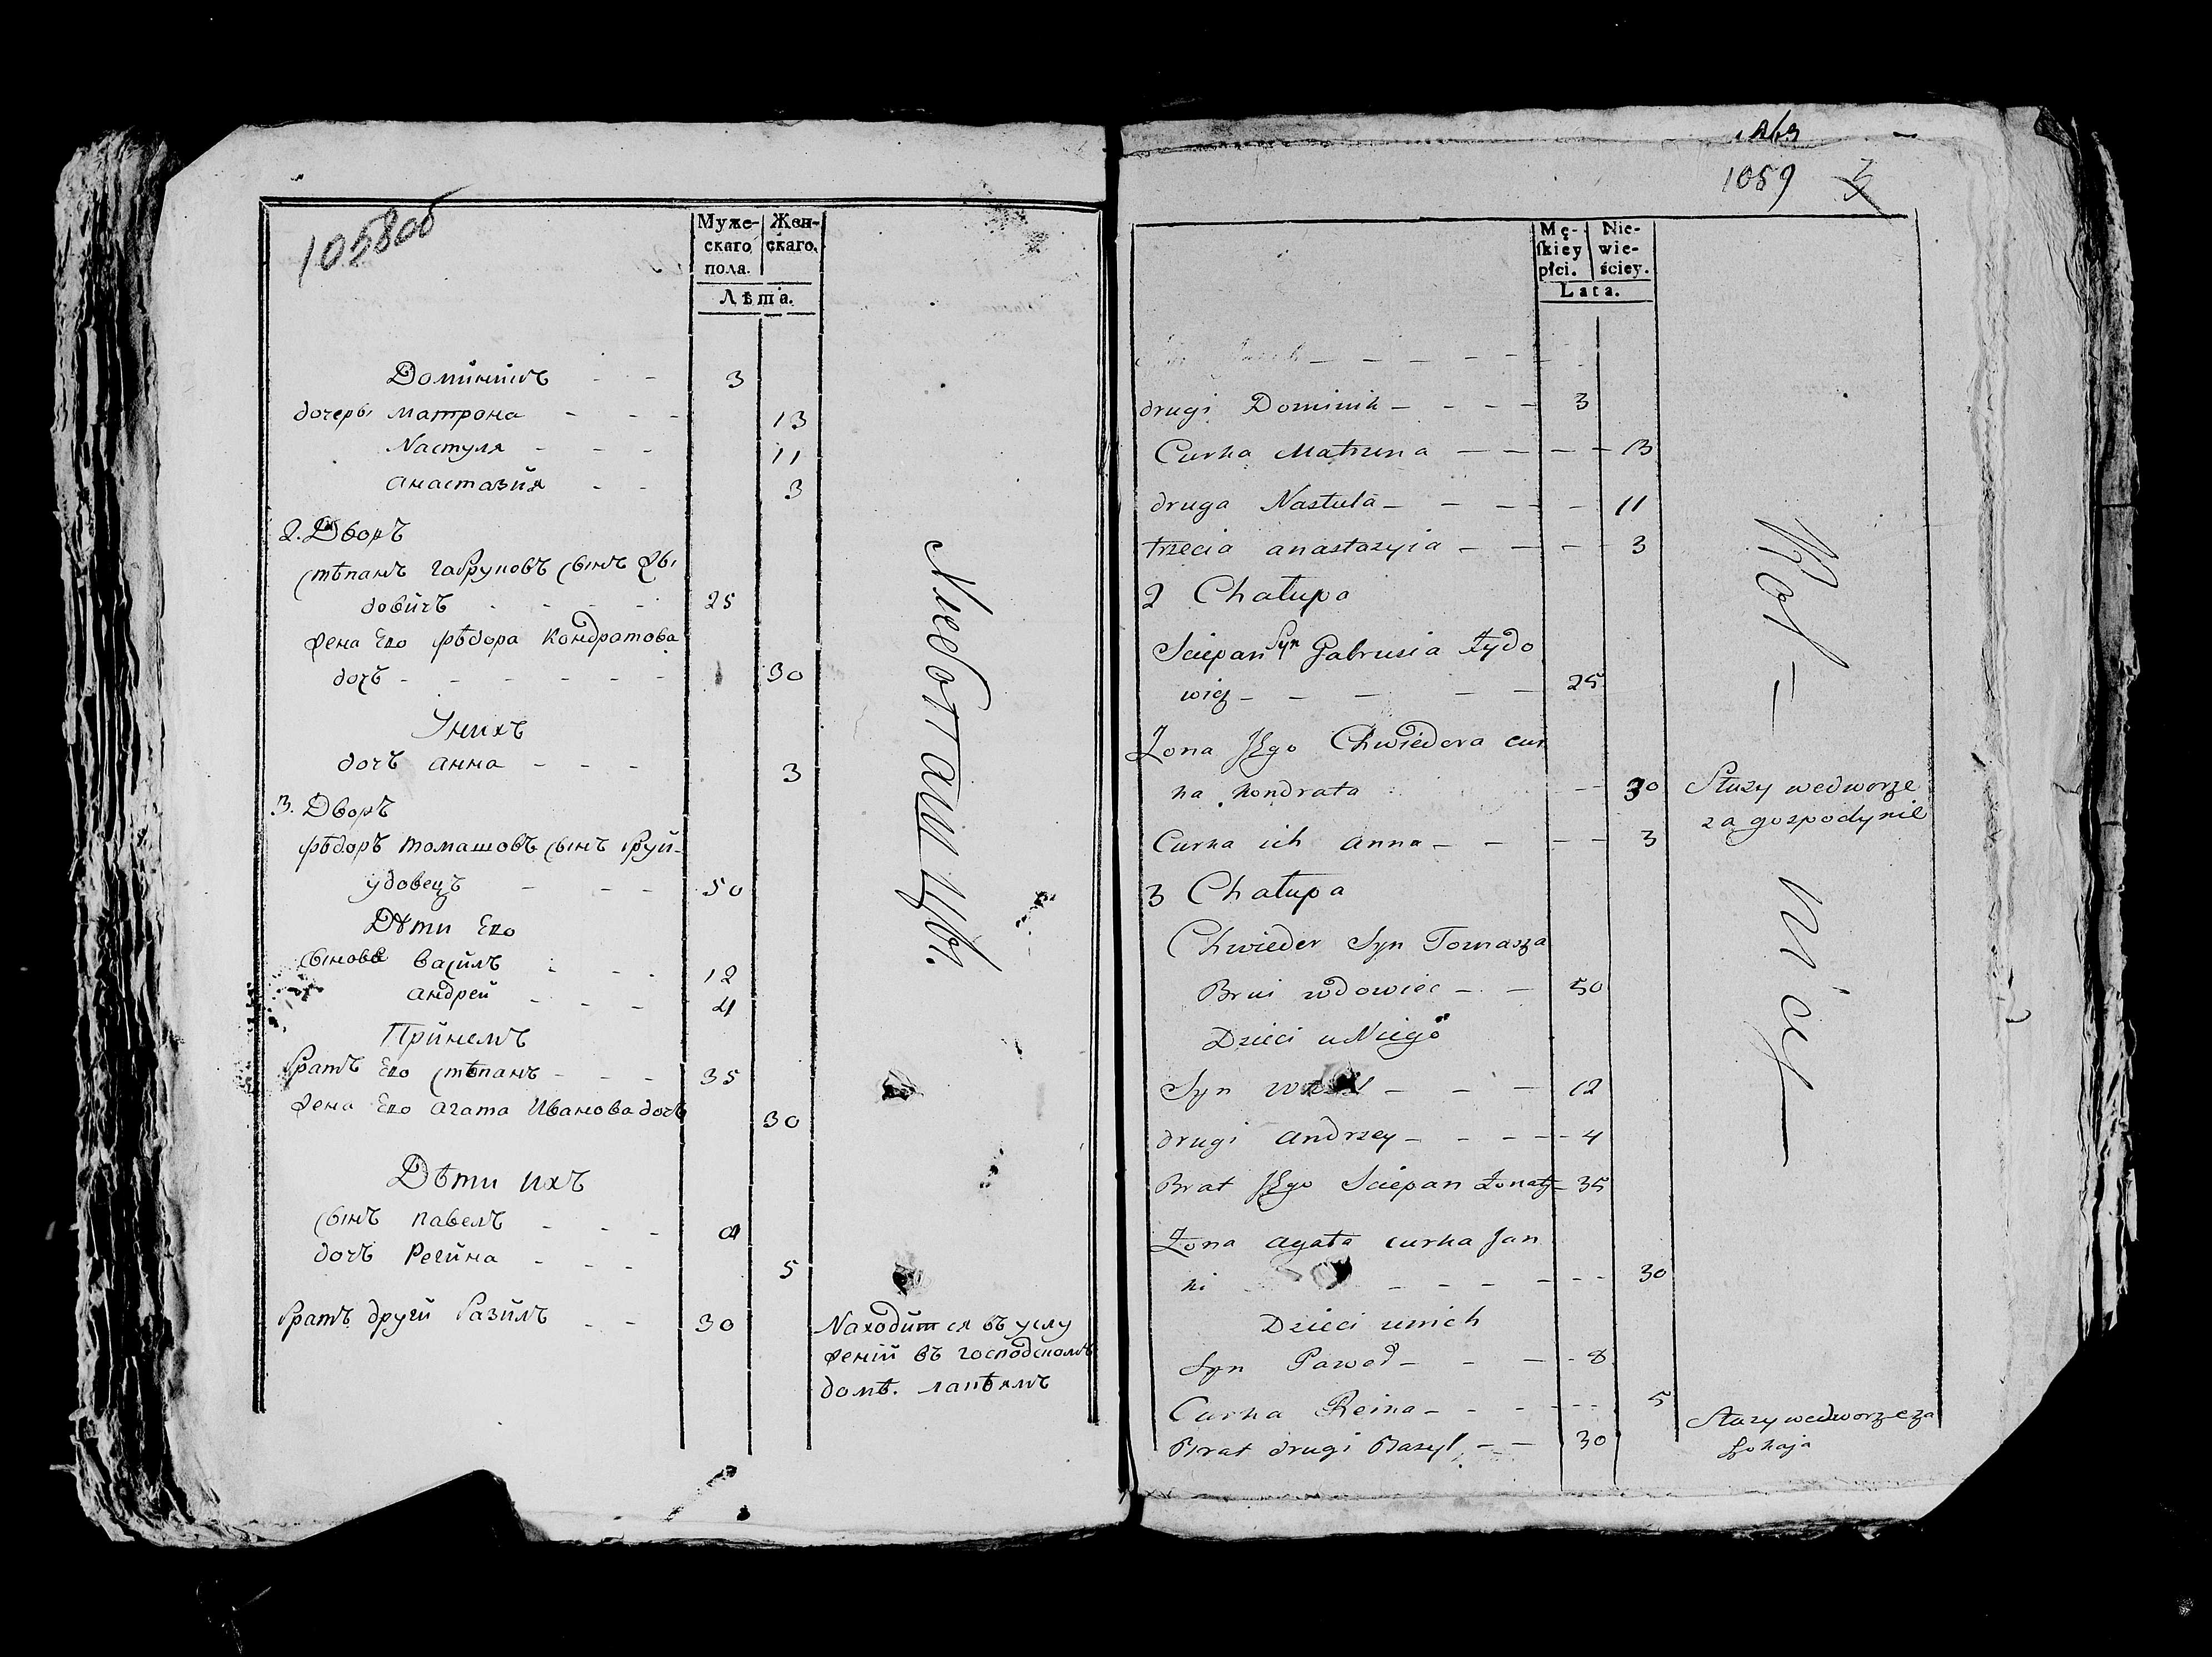 1058об
Муже- Жен-
скаго скаго.
пола.
Лѣта.
Доминикъ - - 3
дочеры Матрона - - - 13
Настуля - - - 11
Анастазия - - 3
2. Дворъ
Стѣпанъ Габруковъ сынъ
довичъ - - - - 25
жена Его Фѣдора Кондратова
дочъ - - - - - - 30
У нихъ
дочъ Анна - - - 3
3. Дворъ
Фѣдоръ Томашовъ сынъ Бруй-
удовецъ - - - 50
Дѣти Его
сынове Василъ - - - 12
Андрей - - - 4
При немъ
братъ Его Стѣпанъ - - - 35
жена Его Агата Иванова дочъ 30
Дѣти ихъ
сынъ Павелъ - - -
дочъ Регина - - - 5
братъ другй Базилъ - - 30
Находитися въ услу
жений въ господскомъ
домѣ. лакѣямъ
1059
Mę- Nie-
ſkiey wie-
płci. ściey.
Lata.
drugi Dominik - - - - 3
Curka Matruna - - - - 13
druga Nastula - - - - 11
trzecia anastazyia - - - 3
2 Chałupa
Sciepan Syn Gabrusia Żydo
wicz - - - - - 25
Żona Jego Chwiedora cur
ka kondrata - 30
Służy wedworze
za gospodynie
Curka ich anna - - - - 3
3 Chałupa
Chwieder Syn Tomasza
Brui wdowiec - - 50
Dzieci u Niego
Syn - - - 12
drugi andrzey - - - - - 4
Brat Jego Sciepan żonaty - 35
Żona agata curka Jan
ki - - - - - - 30
Dzieci unich
Syn Paweł - - - - 8
Curka Reina - - - - - - 5
Brat drugi Bazyl - - 30
Służy wedworze za
lokaja